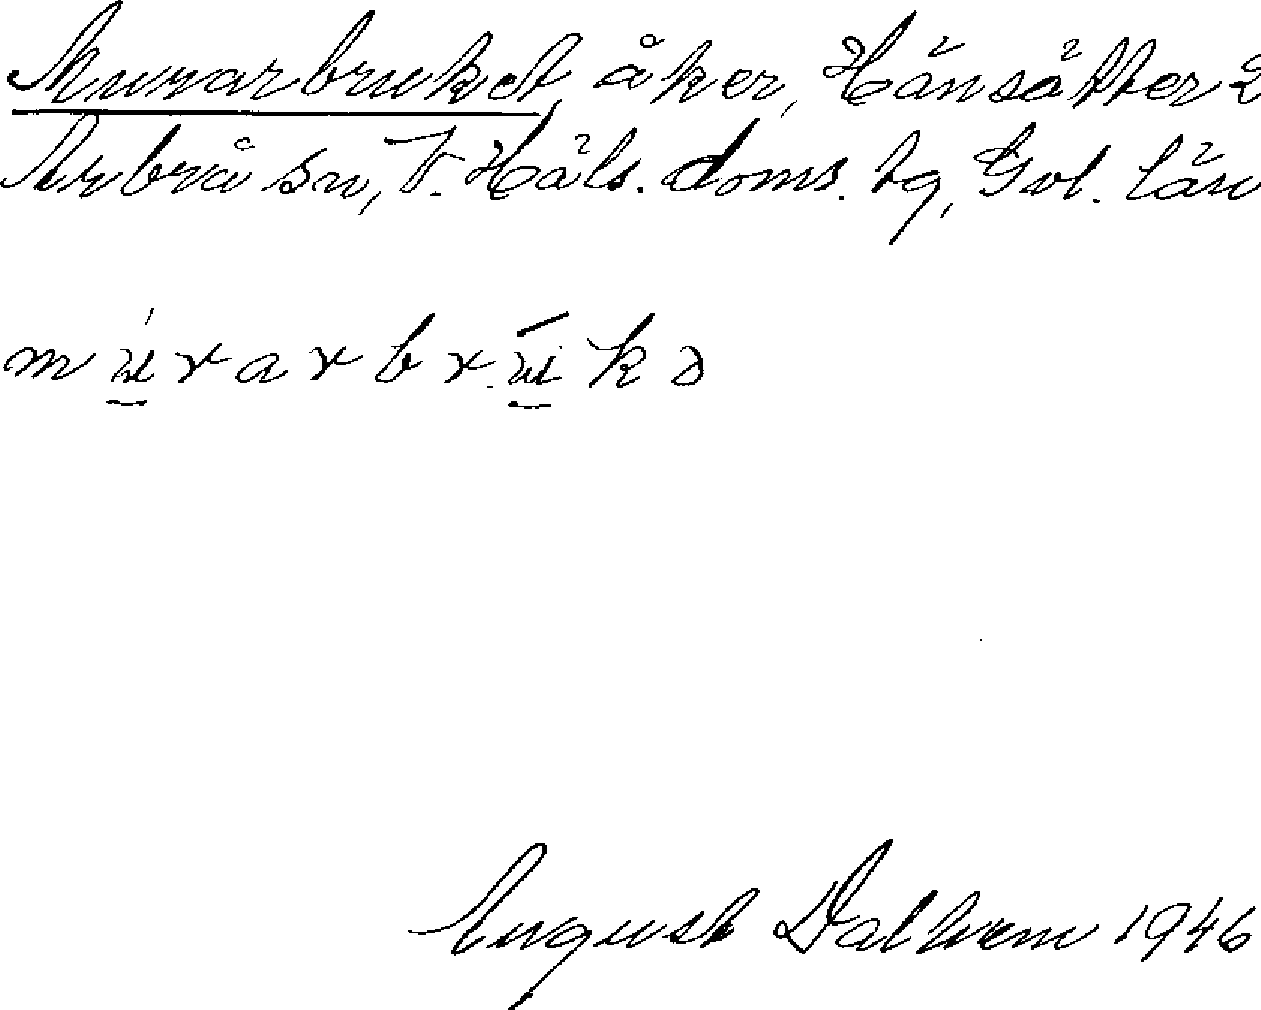 Murarbruket, åker, Hänsätter 2
Arbrå sn, V. Häls. doms. tg, Gvl. län
m ú̲ r a r b r ū̲ k ə
August Dalhem 1946